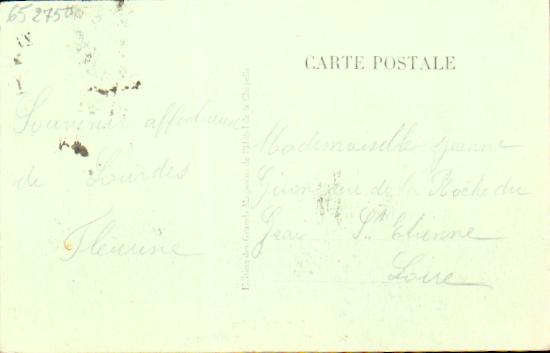 65 275
CARTE POSTALE
Souvenir affectueux
de Lourdes
Fleurine
Editions des Grands Magasins de l'Hôtel de la Chapelle
Mademoiselle Jeanne
rue de la Roche du
Geai St Etienne
Loire